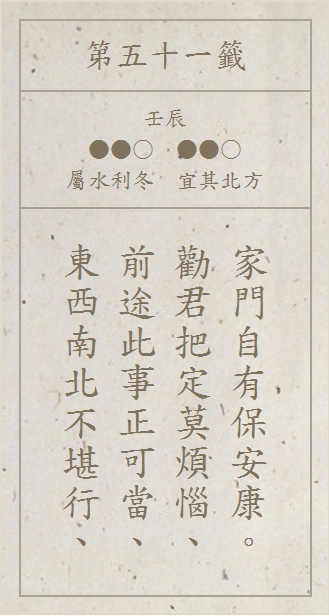 第五十一籤
壬辰
●●○ ●●○
屬水利冬 宜其北方
東西南北不堪行、
前途此事正可當、
勸君把定莫煩惱、
家門自有保安康。